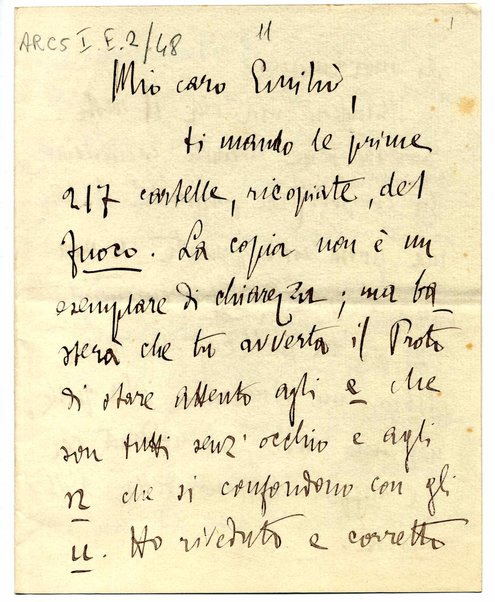 ARCS I. E. 2/48
11
1
Mio caro Emilio,
ti mando le prime
217 cartelle, ricopiate, del
Fuoco. La copia non è un
esemplare di chiarezza; ma ba
sterà che tu avverta il Proto
di stare attento agli e che
son tutti senz'occhio e agli
n che si confondono con gli
u. Ho riveduto e corretto